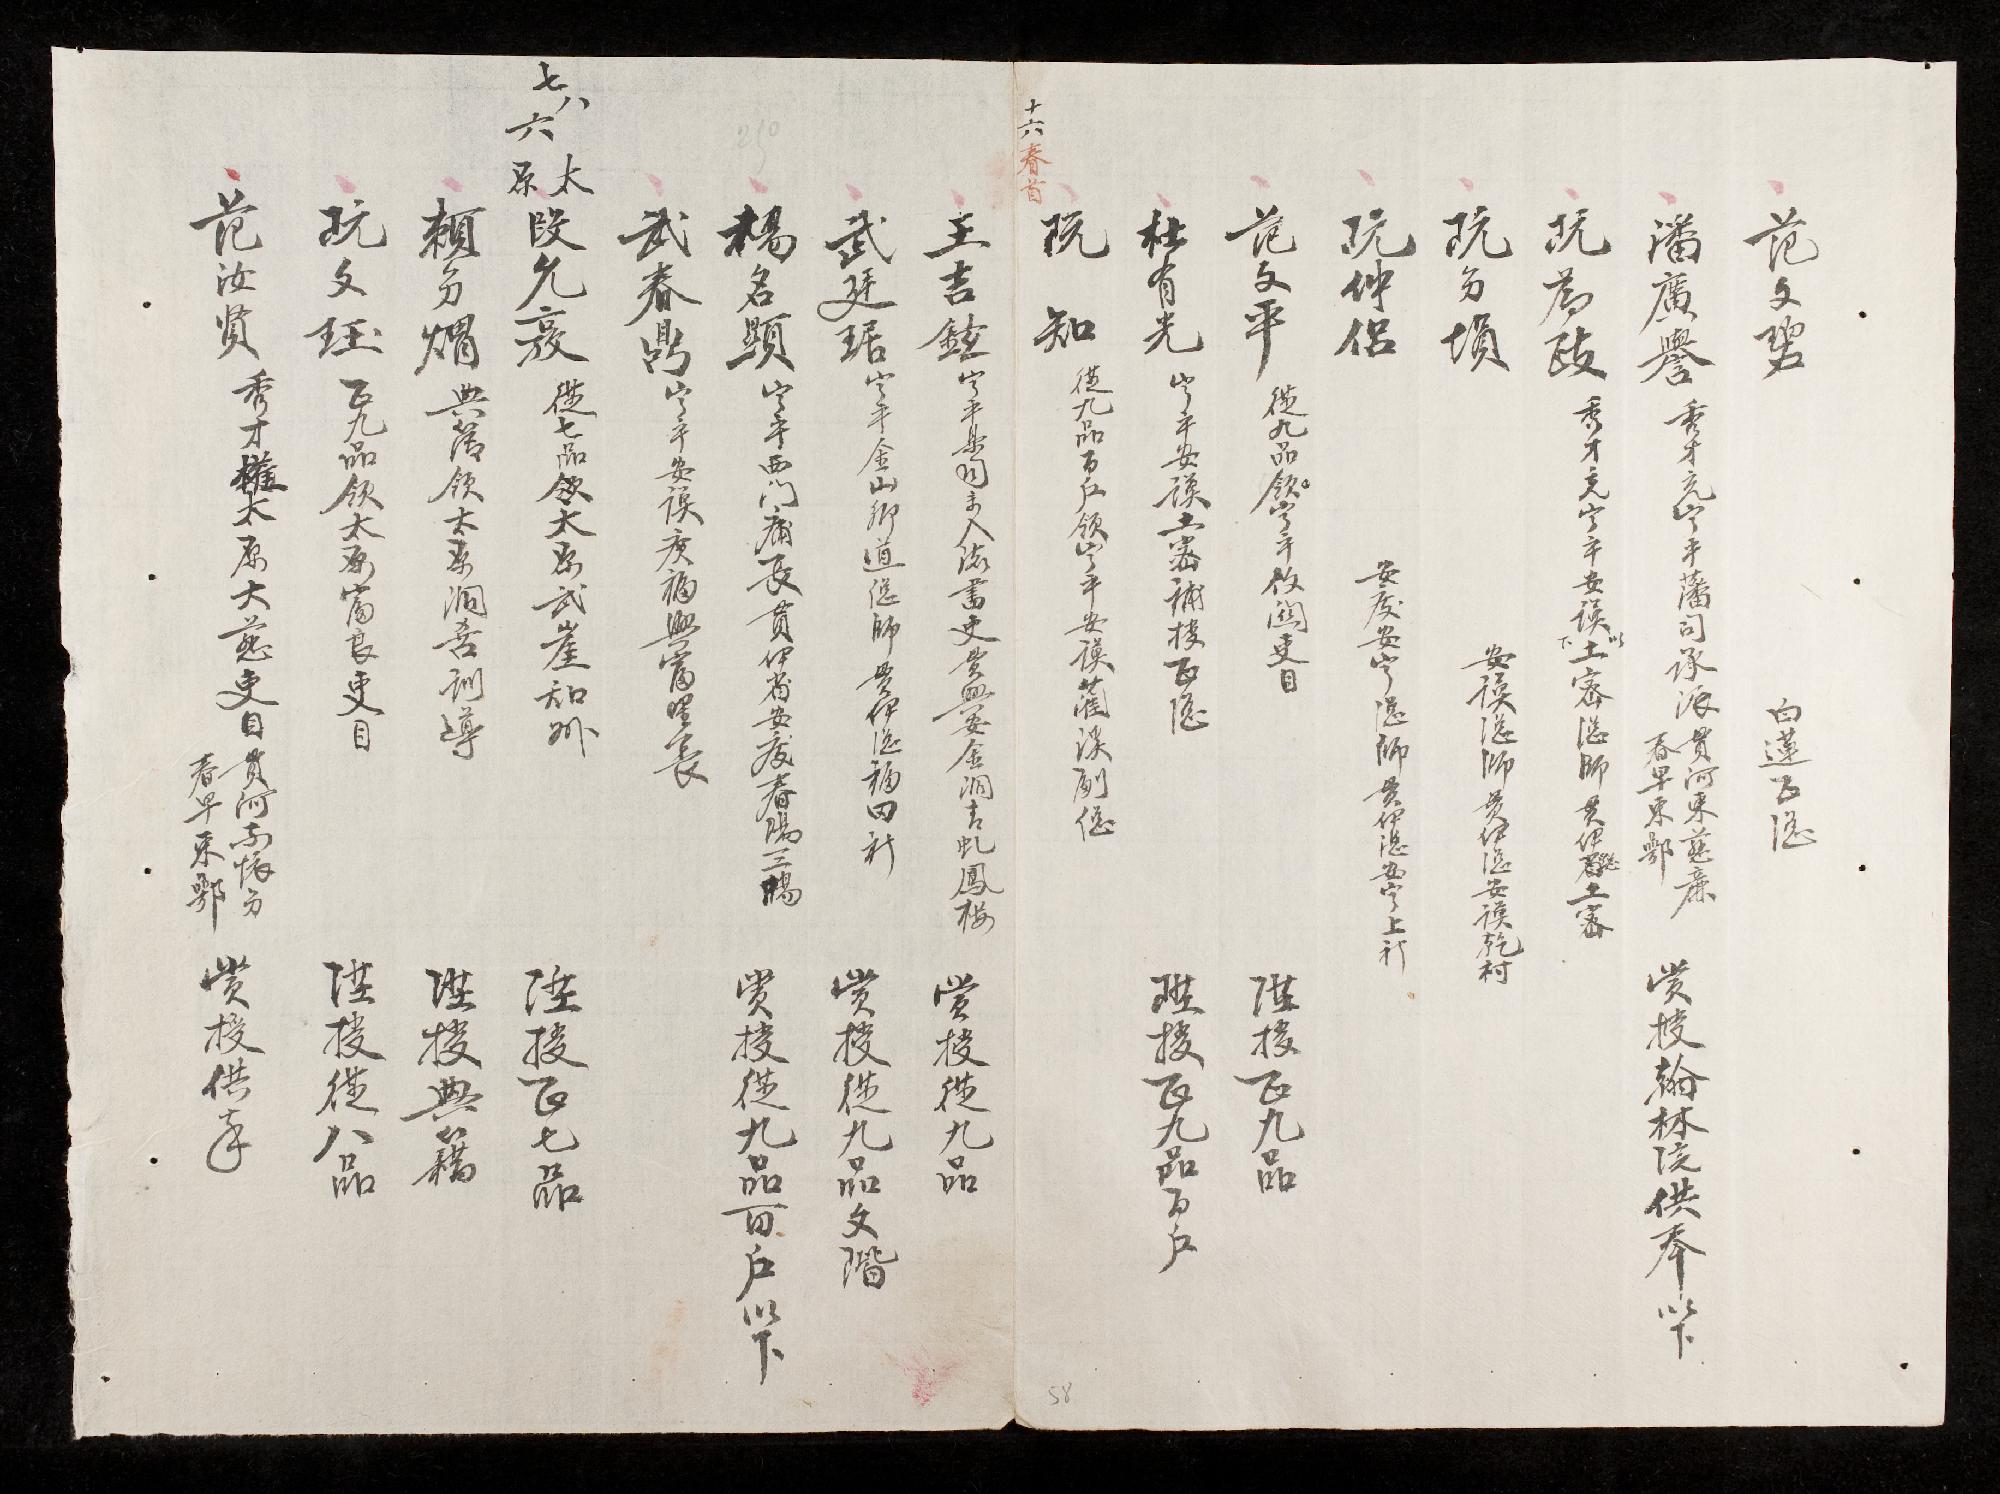 范文 白蓮正總
潘廣譽 秀才充寧平藩司承派 貫河東慈廉 春早東鄂 賞授翰林院供奉以下
阮為 秀才充寧平安謨土密總師 貫伊總土密 以下
阮分塤 安謨總師 貫伊總安謨乾村
阮仲侶 安慶安寧總師 貫伊總安寧上新
范文平 從九品領寧平攸關吏目 陞授正九品
杜有光 寧平安謨土密補授正總 陞授正九品百戶
阮知 從九品百戶領寧平安謨淡副總
十六 春首
王吉 寧平縣同未入流書吏 貫興安金洞吉虬鳳樓 賞授從九品
武廷琚 寧平金山鄉道總師 貫伊總福田新 賞授從九品文階
楊名顯 寧平西門庯長 貫伊省安慶春陽三陽 賞授從九品百戶以下
武春鼎 寧平安謨慶福興富里長
七八
六
太原
段允 從七品領太原武崖知州 陞授正七品
賴分燗 典簿領太原洞喜訓導 陞授典籍
阮文珏 正九品領太原富良吏目 陞授從八品
范汝賢 秀才權太原大慈吏目 貫河南懷分 春早東鄂 賞授供奉
58